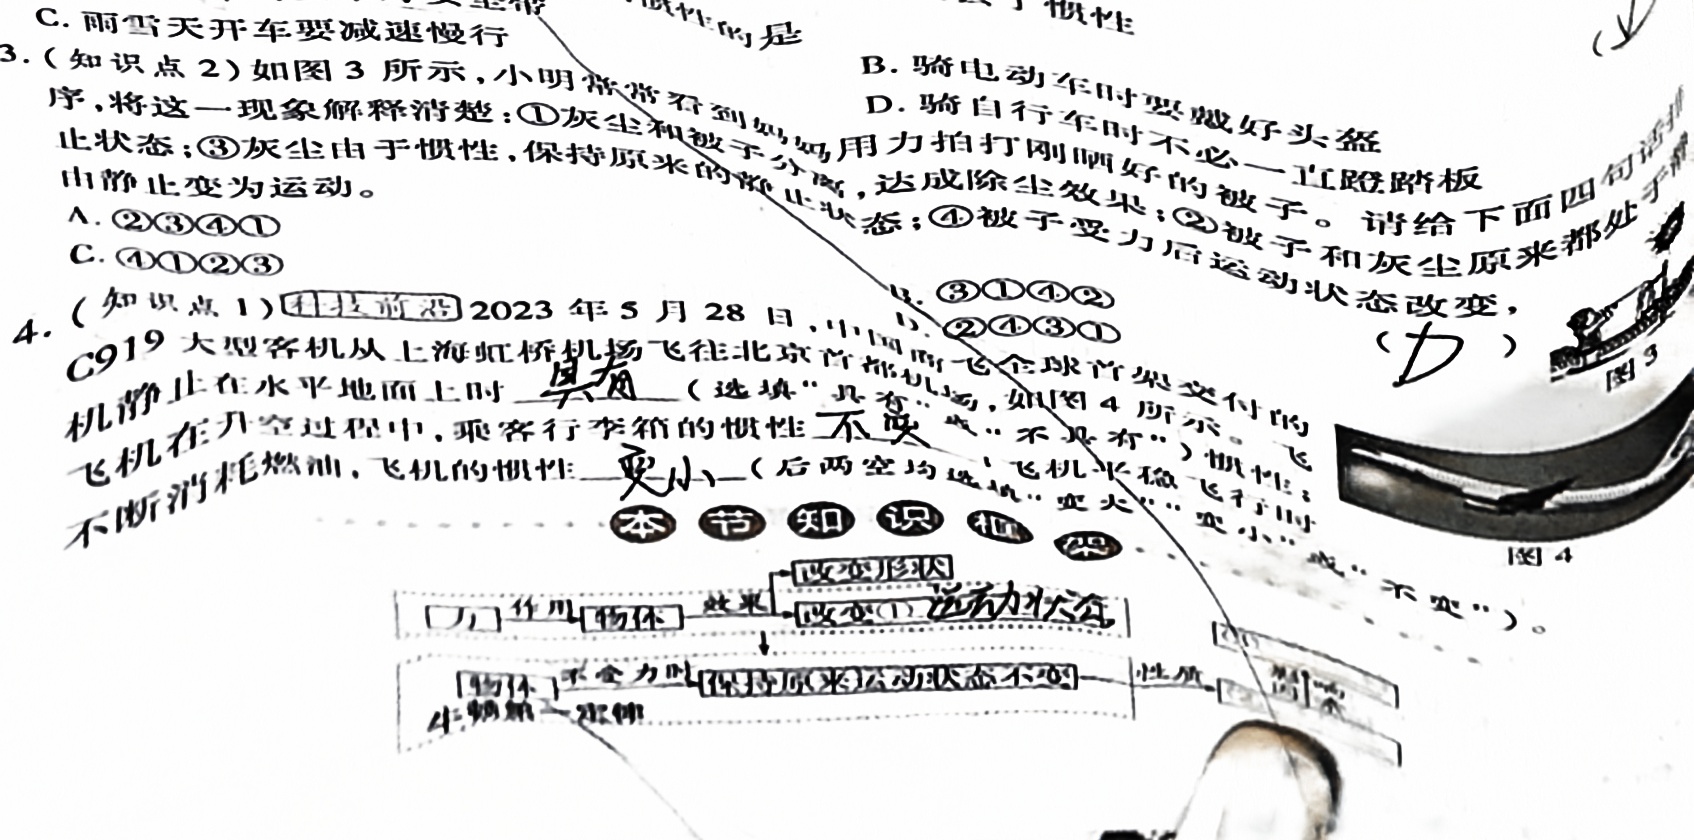 惯性的是
C. 雨雪天开车要减速慢行
B. 骑电动车时要戴好头盔
D. 骑自行车时不必一直蹬踏板
3. (知识点 2) 如图 3 所示,小明常常看到妈妈用力拍打刚晒好的被子。请给下面四句话排
序,将这一现象解释清楚:①灰尘和被子分离,达成除尘效果;②被子和灰尘原来都处于静
止状态;③灰尘由于惯性,保持原来的静止状态;④被子受力后运动状态改变,
由静止变为运动。
( D )
A. ②③④①
B. ③①④②
C. ④①②③
D. ②④③①
图 3
4. (知识点 1) 科技前沿 2023 年 5 月 28 日,中国商飞全球首架交付的
C919 大型客机从上海虹桥机场飞往北京首都机场,如图 4 所示。飞
机静止在水平地面上时 具有 (选填“具有”或“不具有”)惯性;
飞机在升空过程中,乘客行李箱的惯性 不变 ;飞机平稳飞行时
不断消耗燃油,飞机的惯性 变小 (后两空均选填“变大”“变小”或“不变”)。
图 4
本节知识框架
力 作用 物体 效果 改变形状
改变(1) 运动状态
物体 不受力时 保持原来运动状态不变 性质